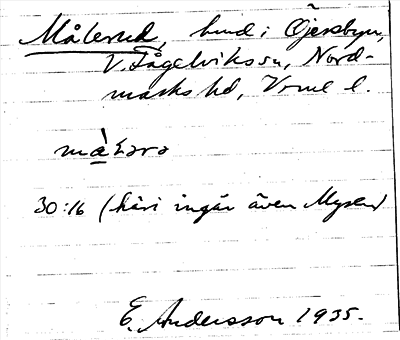 Målerud, hmd i Öjersbyn,
V. Fågelviks sn, Nord-
marks hd, Vrml l.
30:16 (häri ingår även Mysen)
E. Andersson 1935.